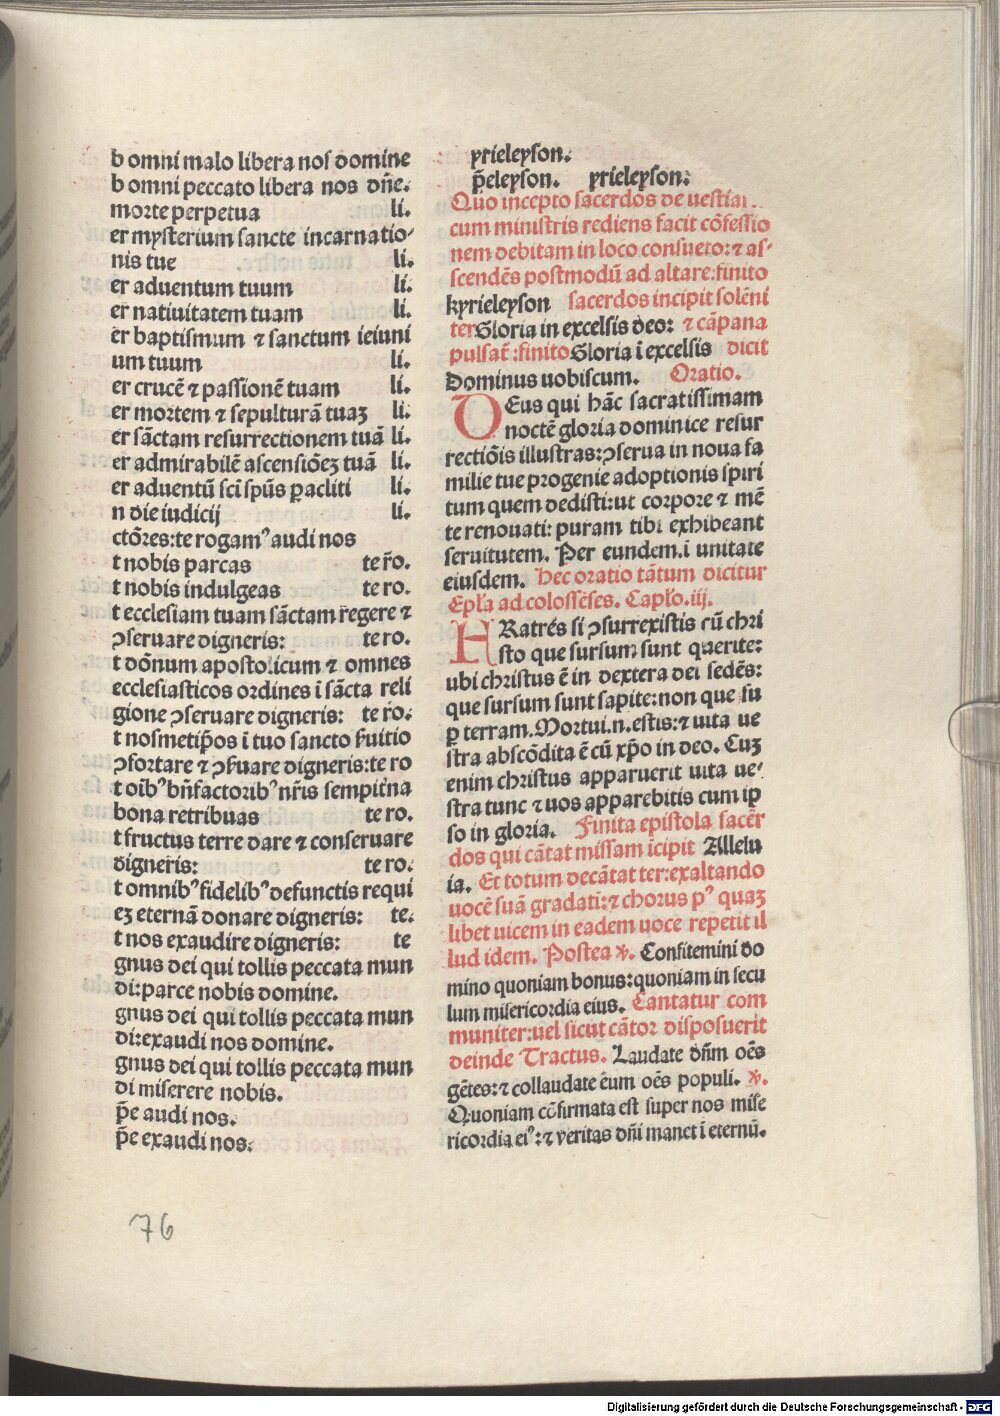 b omni malo libera nos domine
b omni peccato libera nos dñe.
morte perpetua li.
er mysterium sancte incarnatio-
nis tue li.
er aduentum tuum li.
er natiuitatem tuam li.
er baptismum ⁊ sanctum ieiuni
um tuum li.
er crucẽ ⁊ passionẽ tuam li.
er mortem ⁊ sepulturã tuaꝫ li.
er sãctam resurrectionem tuã li.
er admirabilẽ ascensiõeꝫ tuã li.
er aduentũ sci spũs ꝑacliti li.
n die iudicij li.
ctõres: te rogamꝰ audi nos
t nobis parcas te r̃o.
t nobis indulgeas te ro.
t ecclesiam tuam sãctam regere ⁊
ꝯseruare digneris: te ro.
t dõnum apostolicum ⁊ omnes
ecclesiasticos ordines ĩ sãcta reli
gione ꝯseruare digneris: te ro.
t nosmetip̃os ĩ tuo sancto ẜuitio
ꝯfortare ⁊ ꝯẜuare digneris: te ro
t oĩbꝰ bñfactoribꝰ nr̃is sempit̃na
bona retribuas te ro.
t fructus terre dare ⁊ conseruare
digneris: te ro.
t omnibꝰ fidelibꝰ defunctis requi
eꝫ eternã donare digneris: te.
t nos exaudire digneris: te
gnus dei qui tollis peccata mun
di: parce nobis domine.
gnus dei qui tollis peccata mun
di: exaudi nos domine.
gnus dei qui tollis peccata mun
di miserere nobis.
p̃e audi nos.
p̃e exaudi nos:
yrieleyson.
p̃eleyson. yrieleyson:
Quo incepto sacerdos de uestiar
cum ministris rediens facit cõfessio
nem debitam in loco consueto: ⁊ as-
scendẽs postmodũ ad altare: finito
kyrieleyson sacerdos incipit solẽni
ter Gloria in excelsis deo: ⁊ cãpana
pulsat̃: finito Gloria ĩ excelsis dicit
Dominus uobiscum. Oratio.
DEus qui hãc sacratissimam
noctẽ gloria dominice resur
rectiõis illustras: ꝯserua in noua fa
milie tue progenie adoptionis spiri
tum quem dedisti: ut corpore ⁊ mẽ
te renouati: puram tibi exhibeant
seruitutem. Per eundem. ĩ unitate
eiusdem. Hec oratio tãtum dicitur
Epl̃a ad colossẽses. Capl̃o. iij.
FRatrés si ꝯsurrexistis cũ chri
sto que sursum sunt querite:
ubi christus ẽ in dextera dei sedẽs:
que sursum sunt sapite: non que su
ꝑ terram. Mortui .n. estis: ⁊ uita ue
stra abscõdita ẽ cũ xp̃o in deo. Cuꝫ
enim christus apparuerit uita ue-
stra tunc ⁊ uos apparebitis cum ip
so in gloria. Finita epistola sacer̃
dos qui cãtat missam ĩcipit Allelu
ia. Et totum decãtat ter: exaltando
uocẽ suã gradati: ⁊ chorus pꝰ quaꝫ
libet uicem in eadem uoce repetit il
lud idem. Postea ℣. Confitemini do
mino quoniam bonus: quoniam in secu
lum misericordia eius. Cantatur com
muniter: uel sicut cãtor disposuerit
deinde Tractus. Laudate dñm oẽs
gẽtes: ⁊ collaudate eum oẽs populi. ℣.
Quoniam cõfirmata est super nos mise
ricordia eiꝰ: ⁊ veritas dñi manet ĩ eternũ.
76
Digitalisierung gefördert durch die Deutsche Forschungsgemeinschaft - DFG